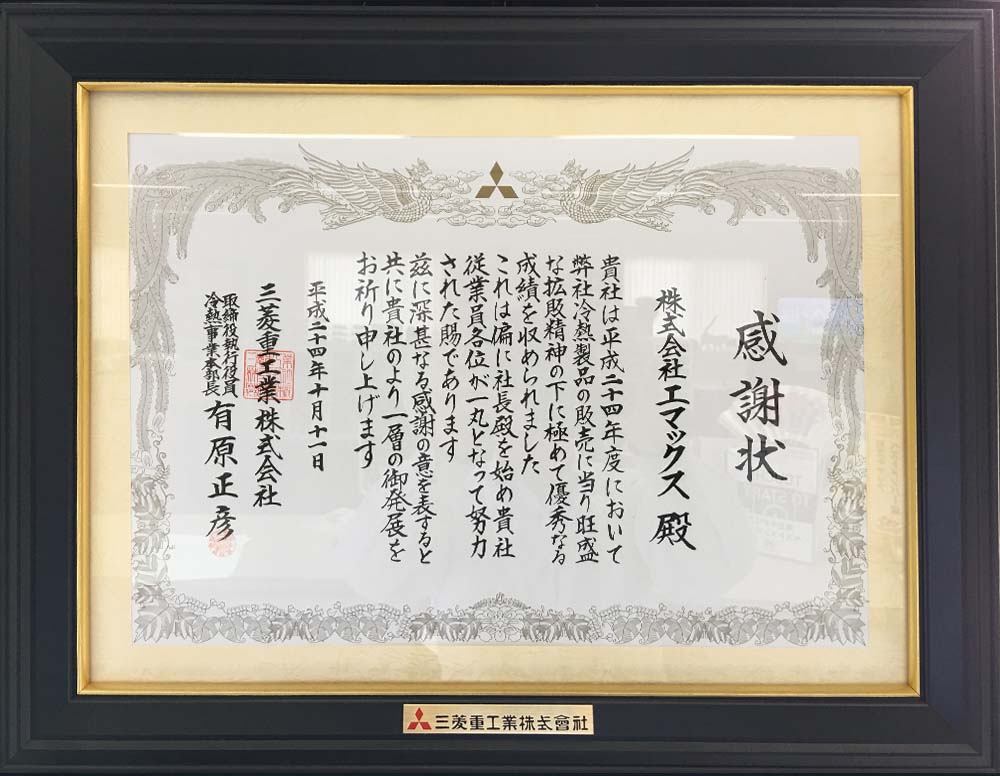 感謝状
株式会社エマックス 殿
貴社は平成二十四年度において
弊社冷熱製品の販売に当り旺盛
な拡販精神の下に極めて優秀なる
成績を収められました
これは偏に社長殿を始め貴社
従業員各位が一丸となって努力
された賜であります
茲に深甚なる感謝の意を表すると
共に貴社のより一層の御発展を
お祈り申し上げます
平成二十四年十月十一日
三菱重工業株式会社
取締役執行役員
冷熱事業本部長 有原正彦
三菱重工業株式會社